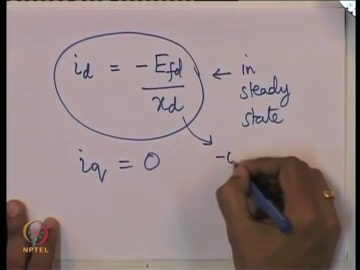 i_d = - E_fd / x_d ← in steady state
i_q = 0
NPTEL